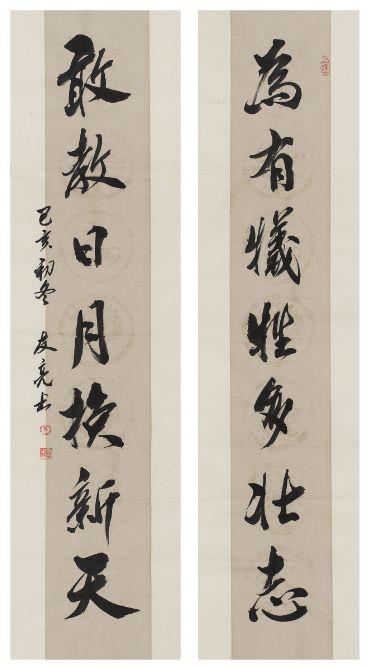 為有犧牲多壯志
敢教日月換新天
己亥初冬 友亮书